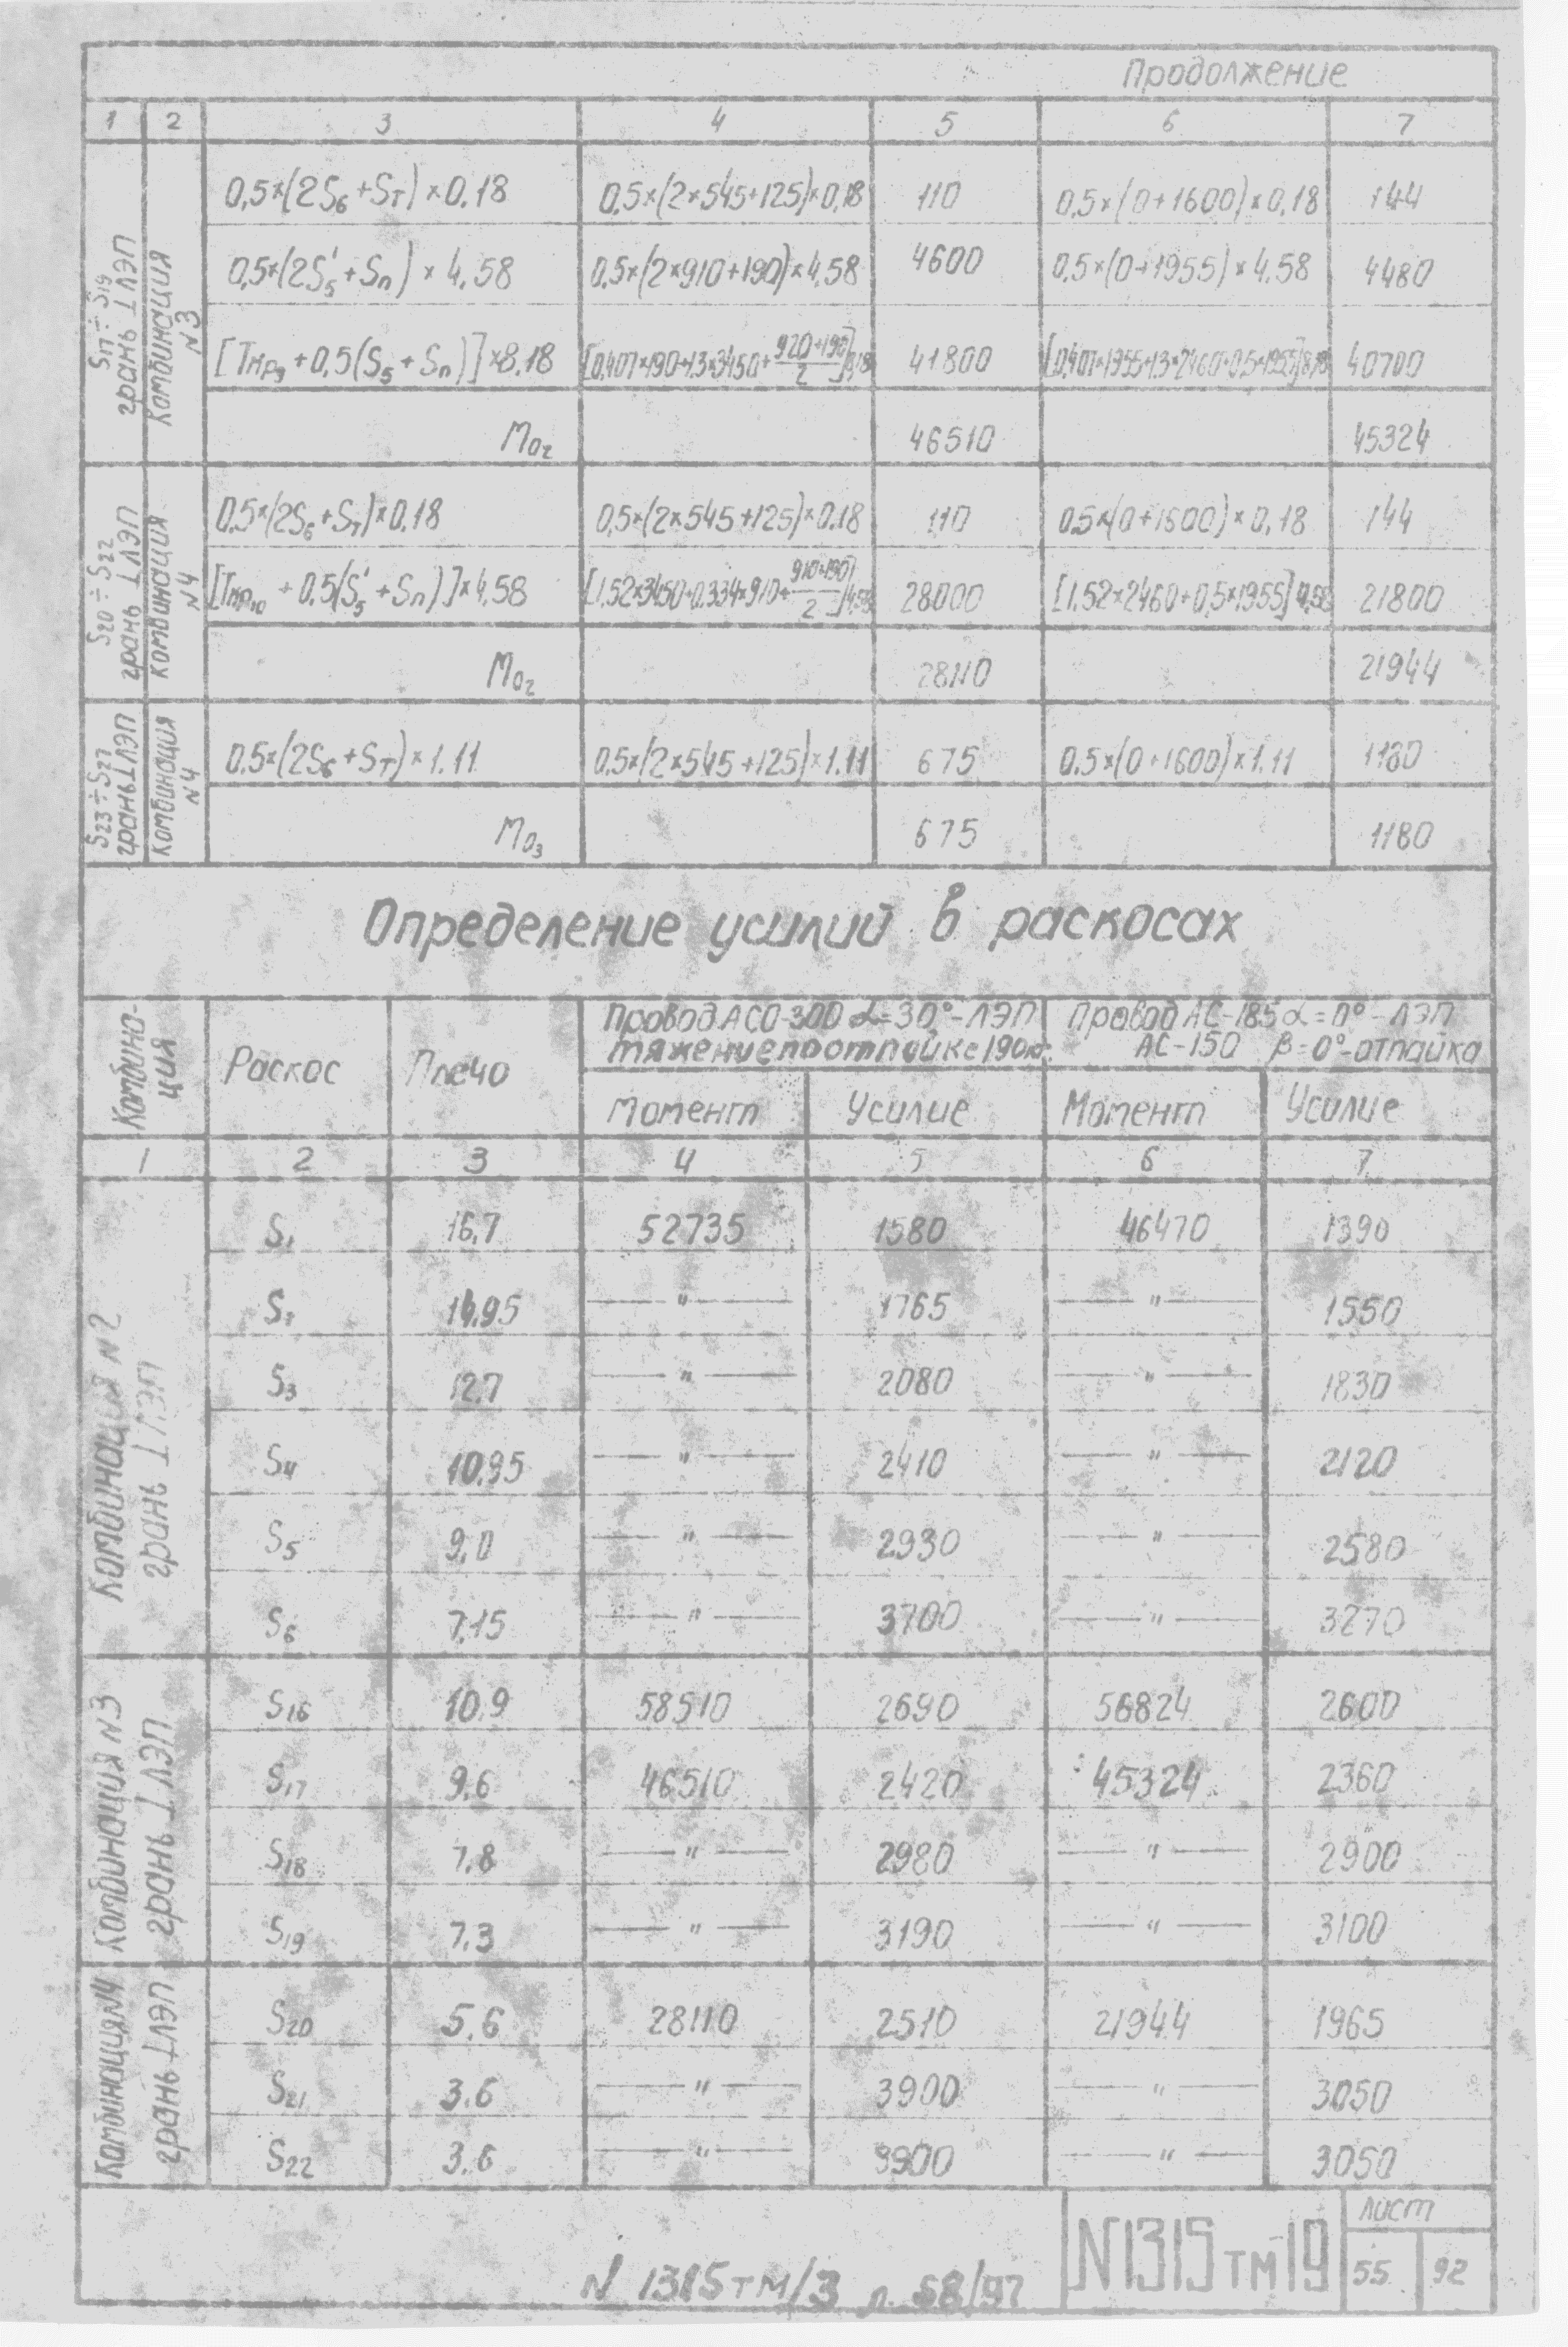 Продолжение
1 2 3 4 5 6 7
S17 ÷ S19 грань ⊥ ЛЭП
Комбинация N3
0,5×(2S6+Sт)×0,18 0,5×(2×545+125)×0,18 110 0,5×(0+1600)×0,18 144
0,5×(2S5'+Sп)×4,58 0,5×(2×910+190)×4,58 4600 0,5×(0+1955)×4,58 4480
[Tкр9+0,5(S5+Sп)]×8,18 [0,407×190+1,3×3450+(920+190)/2]8,18 41800 [0,407×1955+1,3×2460+0,5×1955]8,18 40700
Mo2 46510 45324
S20 ÷ S22 грань ⊥ ЛЭП
Комбинация N4
0,5×(2S6+Sт)×0,18 0,5×(2×545+125)×0,18 110 0,5×(0+1600)×0,18 144
[Tкр10+0,5(S5'+Sп)]×4,58 [1,52×3450+0,334×910+(910+190)/2]4,58 28000 [1,52×2460+0,5×1955]4,58 21800
Mo2 28110 21944
S23 ÷ S27 грань ⊥ ЛЭП
Комбинация N4
0,5×(2S6+Sт)×1,11 0,5×(2×545+125)×1,11 675 0,5×(0+1600)×1,11 1180
Mo3 675 1180
Определение усилий в раскосах
Комбинация Раскос Плечо
Провод АСО-300 α=30°-ЛЭП
тяжение по отпайке 190кг.
Провод АС-185 α=0°-ЛЭП
АС-150 β=0°-отпайка
Момент Усилие Момент Усилие
1 2 3 4 5 6 7
Комбинация N2
грань ⊥ ЛЭП
S1 16,7 52735 1580 46470 1390
14,95 —"— 1765 —"— 1550
S3 12,7 —"— 2080 —"— 1830
S4 10,95 —"— 2410 —"— 2120
S5 9,0 —"— 2930 —"— 2580
S6 7,15 —"— 3700 —"— 3270
Комбинация N3
грань ⊥ ЛЭП
S16 10,9 58510 2690 56824 2600
S17 9,6 46510 2420 45324 2360
S18 7,8 —"— 2980 —"— 2900
S19 7,3 —"— 3190 —"— 3100
Комбинация N4
грань ⊥ ЛЭП
S20 5,6 28110 2510 21944 1965
S21 3,6 —"— 3900 —"— 3050
S22 3,6 —"— 3900 —"— 3050
N 1315тм/3 л. 58/97
N1315тм19
лист
55 92